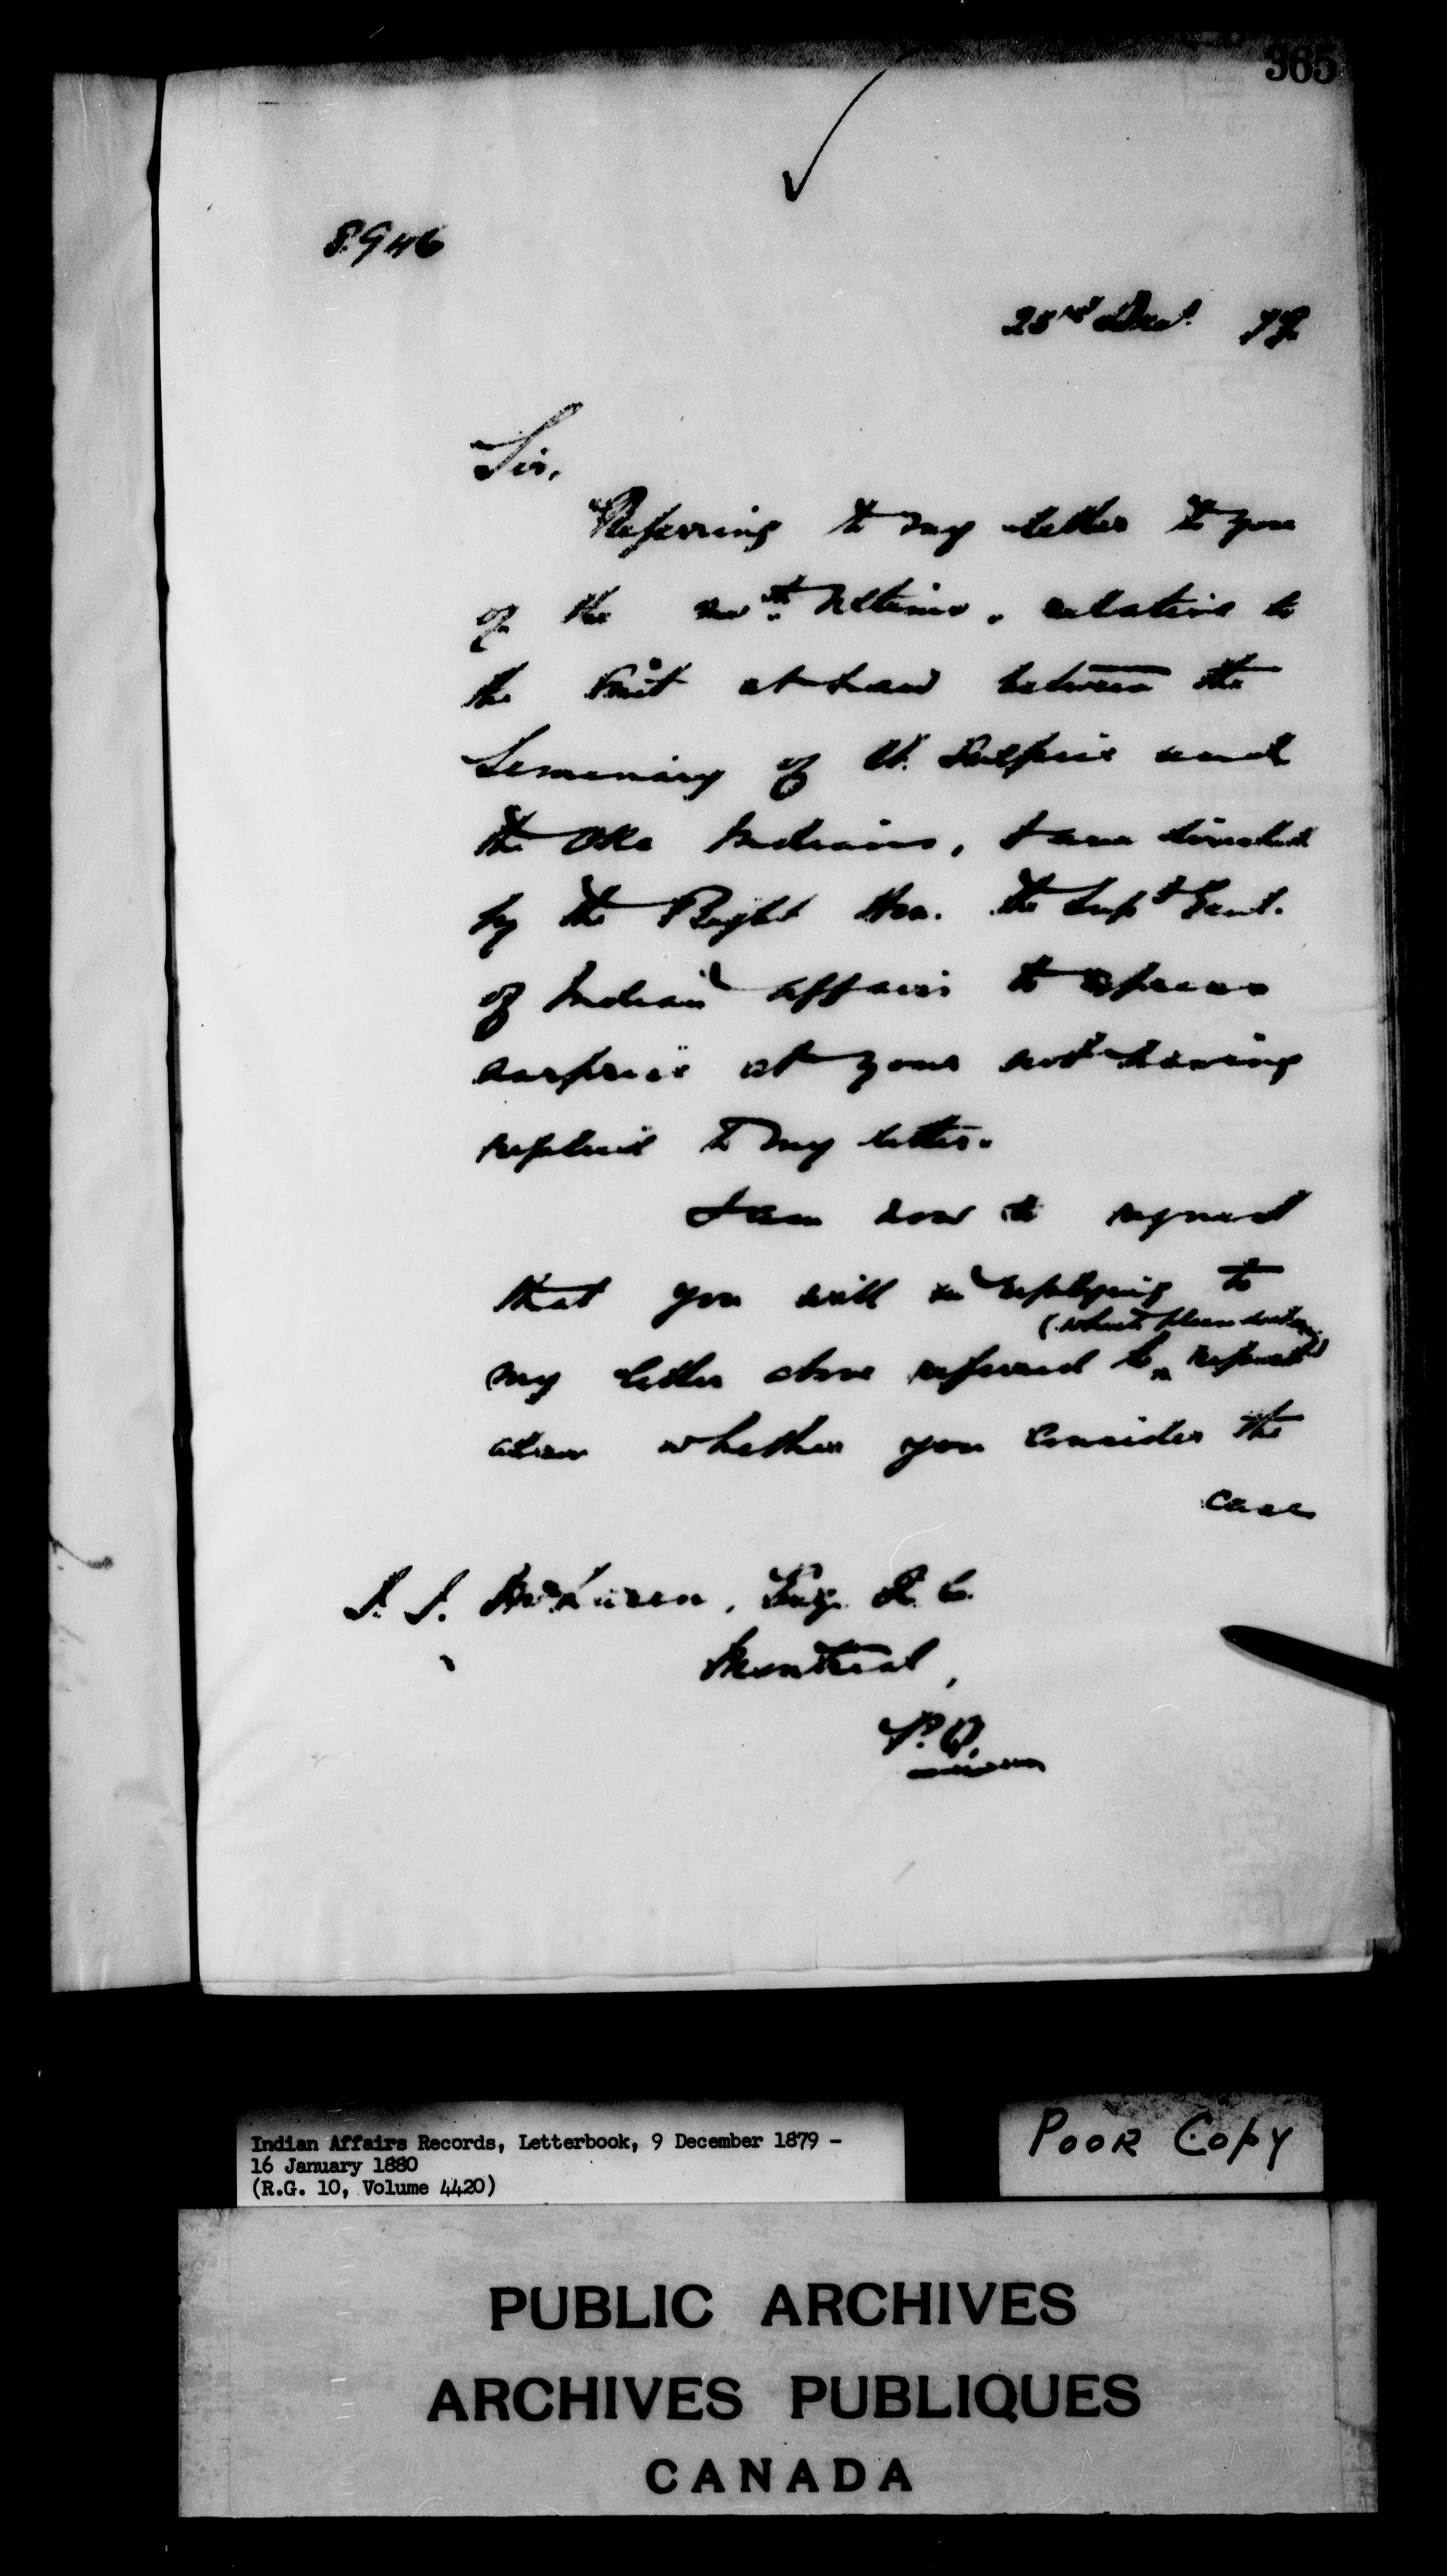 365
8946
23rd Decr. 79
Sir,
Referring to my letter to you
of the ultimo, relative to
the suit at Law between the
Seminary of St. Sulpice and
the Oka Indians, I am directed
by the Right Hon. the Supt. Genl.
of Indian Affairs to express
surprise at your not having
replied to my letter.
I am now to request
that you will in replying to
(which please do at
my letter above referred to
whether you consider the
case
J. J. McLaren, Esq. Q. C.
Montreal,
P.Q.
Indian Affairs Records, Letterbook, 9 December 1879 -
16 January 1880
(R.G. 10, Volume 4420)
POOR COPY
PUBLIC ARCHIVES
ARCHIVES PUBLIQUES
CANADA